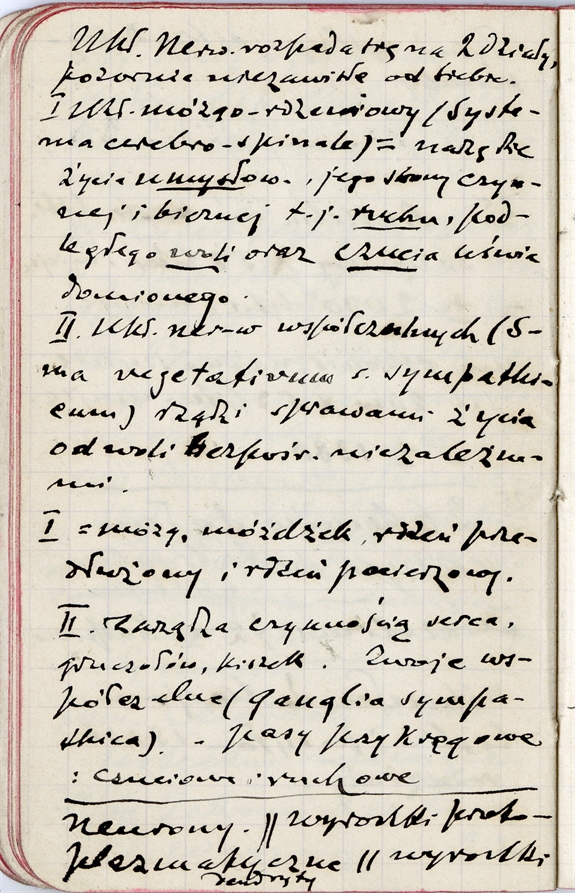 Ukł. Nerw. rozpada się na 2 działy,
pozornie niezawisłe od siebie.
I Ukł. mózgo-rdzeniowy (Syste-
ma cerebro-spinale) = narzędzie
życia umysłow., jego strony czyn-
nej i biernej t.j. ruchu, pod-
ległego woli oraz czucia uświa
domionego.
II. Ukł. ner-w współczulnych (S-
ma vegetativum s. sympathi-
cum) rządzi sprawami życia
od woli bezpośr. niezależne-
mi.
I = mózg, móżdżek, rdzeń prze-
dłużony i rdzeń pacierzowy.
II. Zarządza czynnością serca,
gruczołów, kiszek. Zwoje ws-
półczulne (ganglia sympa-
thica). - pasy przykręgowe
: czuciowe i ruchowe
neurony. || wyrostki proto-
plazmatyczne || wyrostki
dendryty